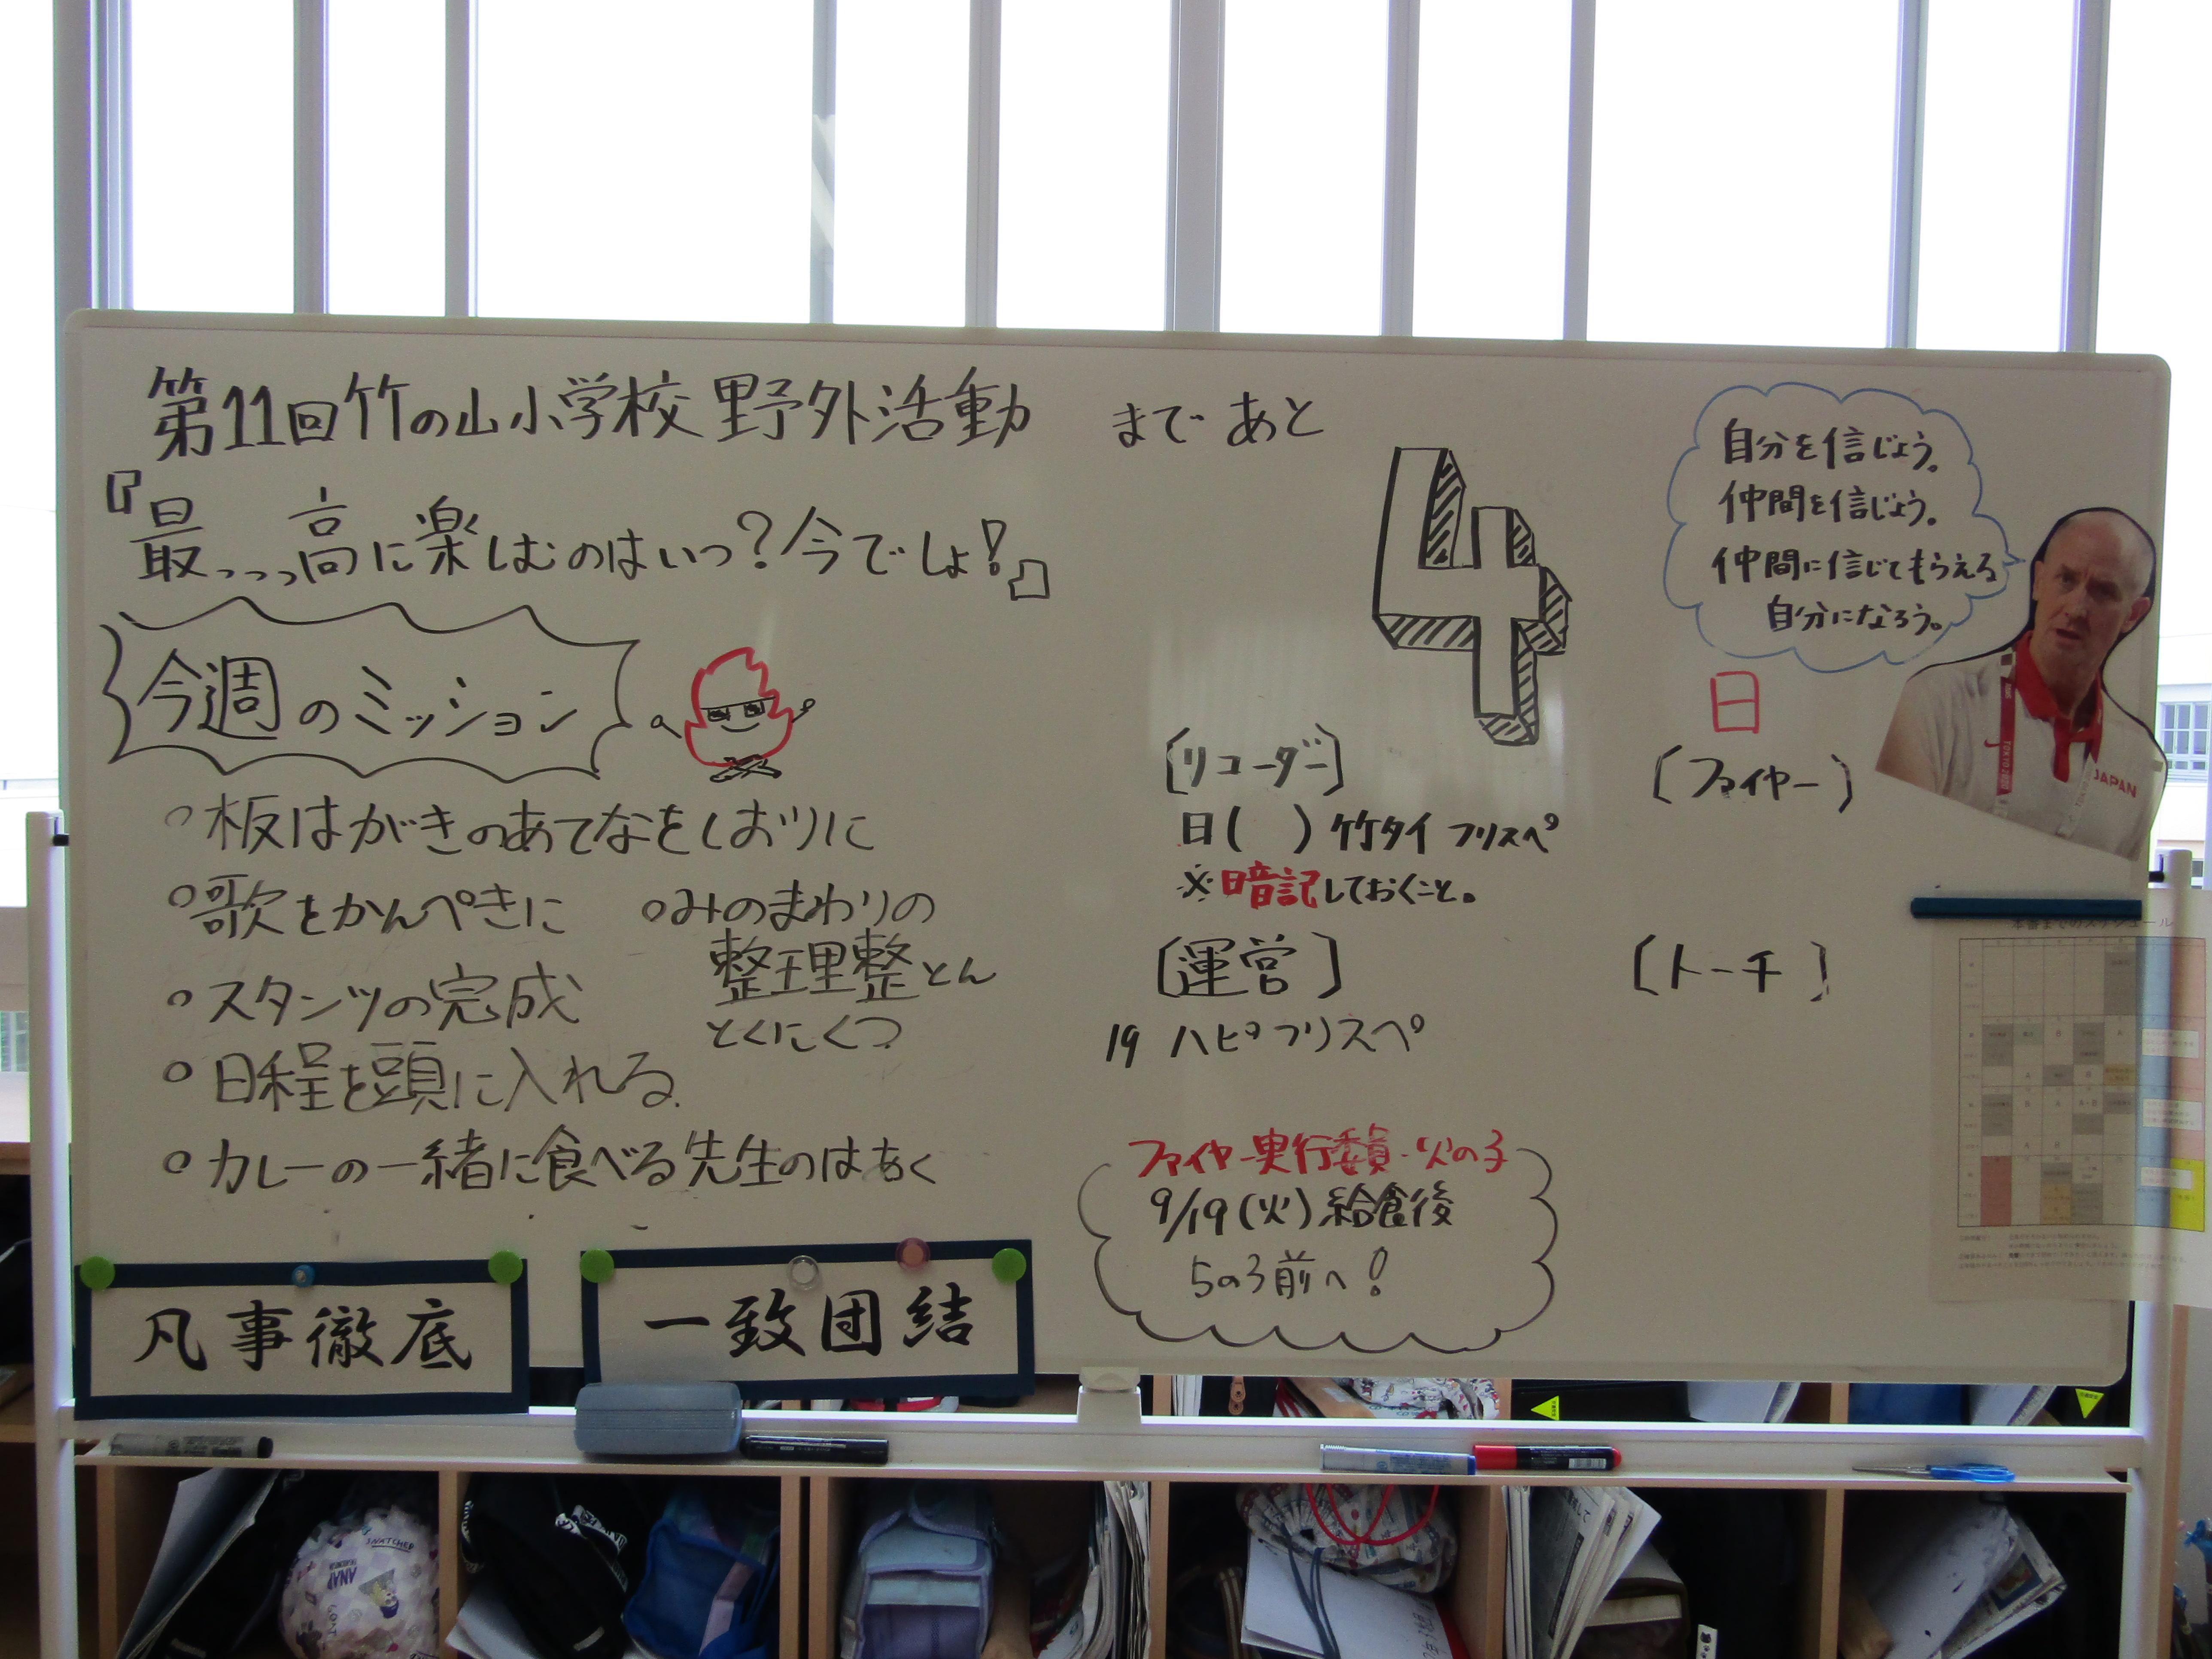 第11回竹の山小学校 野外活動 まで あと
4
日
『最っっっ高に楽しむのはいつ?今でしょ!』
今週のミッション
○板はがきのあてなをしおりに
○歌をかんぺきに
○スタンツの完成
○日程を頭に入れる
○カレーの一緒に食べる先生のはあく
○みのまわりの
整理整とん
とくにくつ
自分を信じよう。
仲間を信じよう。
仲間に信じてもらえる
自分になろう。
JAPAN
〔リコーダー〕
日( )竹タイ フリスペ
※暗記しておくこと。
〔ファイヤー〕
〔運営〕
19 ハピフリスペ
〔トーチ〕
ファイヤー実行委員・火の子
9/19(火)給食後
5の3前へ!
凡事徹底
一致団結
SNATCHER
ANAP